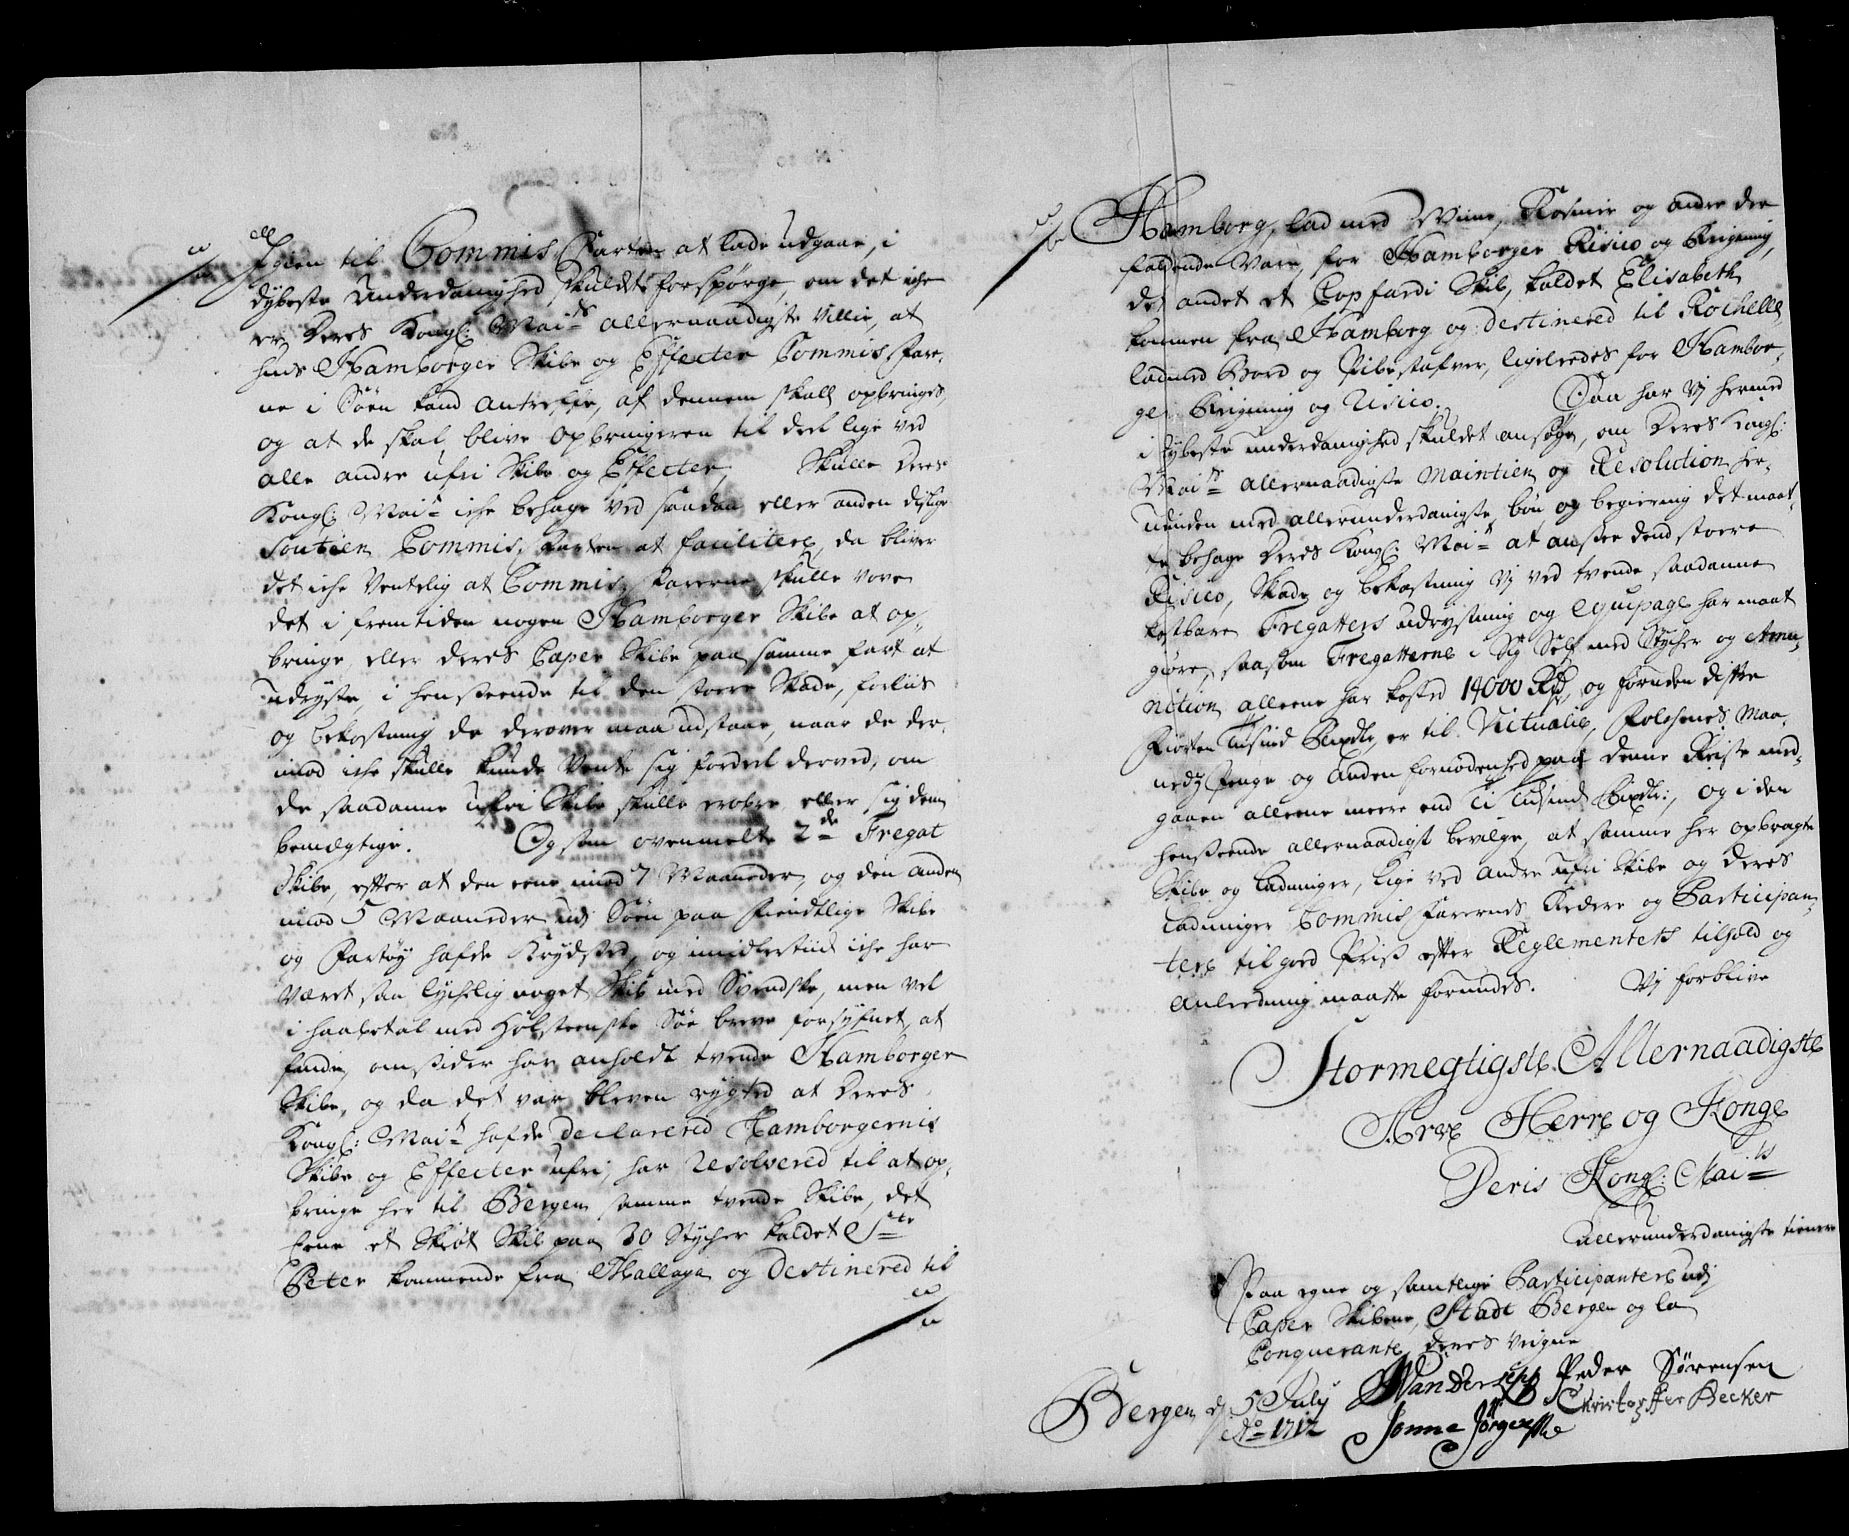 Igien til Commis Farten at lade udgaae, i
dybeste Underdanighed skuldet forspørge, om det iche
er Deres Kongl: Mai:ts allernaadigste Villie, at
hvis Hamborger Skibe og Effecter Commis Fare,
ne i Søen kand antreffe, af dennem skall opbringes
og at de skal blive opbringeren til deel lige ved
alle andre ufri Skibe og Effecter, Skulle Deres
Kongl: Mai:t iche behage ved saadan eller anden dislige
Soutien Commis, Farten at facilitere, da bliver
det iche Ventelig at Commis Farerne skulle vove
det i fremtiden nogen Hamborger Skibe at op,
bringe, eller deres Caper Skibe paa samme fart at
udryste, i henseende til den store Skade, forliis
og bekostning de derover maa udstaae, naar de der,
imod iche skulle kunde Vente sig fordeel derved, om
de saadanne ufri Skibe skulle erobre, eller sig dem
bemegtige. Og som ovenmelte 2de Fregat
Skibe, efter at den eene imod 7 Maaneder, og den anden
imod 5 Maaneder udj Søen paa Fiendtlige Skibe
og Fartøy hafde Krydset, og imidlertiid iche har
Været saa lychelig noget Skib med Svendske, men vel
i haabetal med Holsteenske Søe breve forsyfnet, at
finde, omsider har anholdt tvende Hamborger
Skibe, og da det var bleven rygted at Deres
Kongl: Mai:t hafde declarered Hamborgernis
Skibe og Effecter ufri, har resolvered til at op,
bringe her til Bergen samme tvende Skibe, det
Eene et Skiøt Skib paa 30 Stycher kaldet Ste
Peter kommende fra Mallaga og Destinered til
Hamborg, lad med Wiine, Rosiner og andre der
faldende Vare, for Hamborger Risico og Reigning,
det andet et Copfardi Skib, kaldet Elisabeth
kommen fra Hamborg og destinered til Rochelle
lad med Bord og Pibestafver, ligeleedes for Hambor,
ger Reigning og Risico. Saa har Vj hermed
i dybeste underdanighed skuldet ansøge, om Deres Kongl:
Mai:ts allernaadigste Maintien og Resolution her,
udinden med allerunderdanigste bøn og begiering det maat,
te behage Deres Kongl: Mai:t at ansee dend stoere
Risico, Skade og bekostning Vj ved tvende saadanne
kostbare Fregatters udrystning og equipage har maat
giøre, saasom Fregatterne i Sig Self med Stycher og Amu,
nition alleene har kosted 14000 Rdr, og foruden disse
Fiorten Tusind Rixdlr, er til Victualie, Folchenes Maa,
nedz Penge og Anden fornødenhed paa denne Reise med,
gaaen alleene meere end Ti Tusind Rixdlr:, og i den
henseende allernaadigst bevilge, at samme her opbragte
Skibe og Ladninger, lige ved andre ufri Skibe og deres
Ladninger Commis Farernes Redere og Participan,
tere til goed Priss efter Reglementets tilhold og
Anleedning maatte forundes. Vj forblive
Stormegtigste Allernaadigste
Arve Herre og Konge
Deris Kongl: Mai:ts
Allerunderdanigste tienere
Paa egne og samtlige Participantere udj
Caper Skibene, Stadt Bergen og la
Conquerante, deres Veigne
Bergen d 5 July
Ao 1712
Peder Sørensen
Christoffer Becker
Jonne Jørgensen